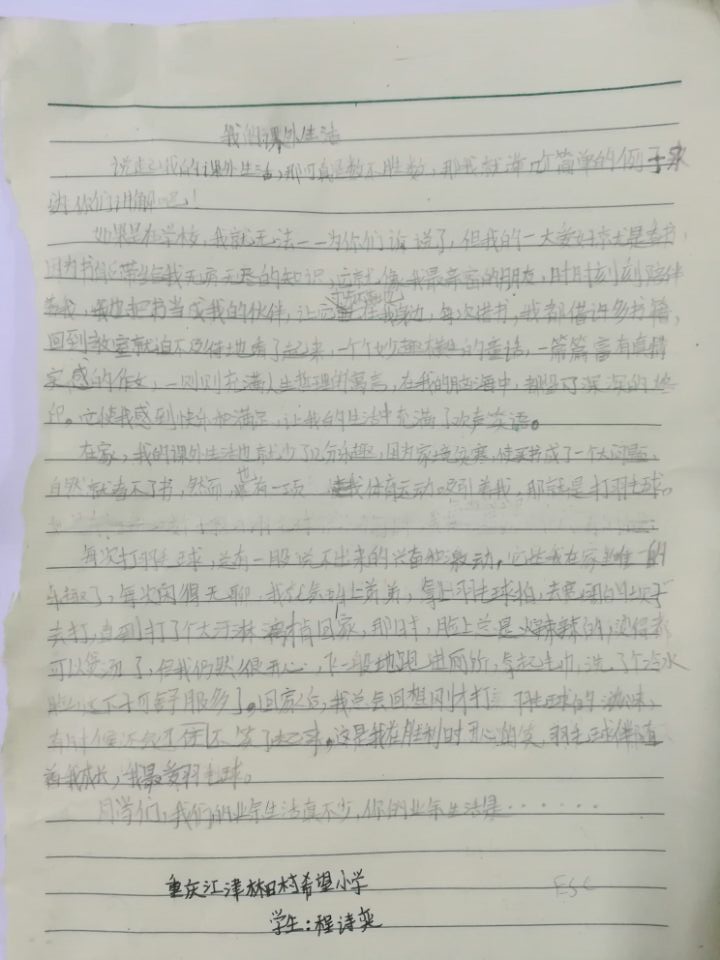 我的课外生活
说起我的课外生活,那可真是数不胜数,那我就举几个简单的例子来
为你们讲解吧!
如果是在学校,我就无法一一为你们诉说了,但我的一大爱好就是看书,
因为书能带给我无穷无尽的知识,它就像我最亲密的朋友,时时刻刻陪伴
着我,我也把书当成我的伙伴,让它,每次借书,我都借许多书籍,
回到教室就迫不及待地看了起来,一个个妙趣横生的童话,一篇篇富有真情
实感的作文,一则则充满人生哲理的寓言,在我的脑海中,都留下深深的
识。它使我感到快乐和满足,让我的生活中充满了欢声笑语。
在家,我的课外生活也就少了几分乐趣,因为家境贫寒,使买书成了一个大问题,
自然就看不了书,然而,也有一项体育运动吸引着我,那就是打羽毛球。
每次打羽毛球,总有一股说不出来的兴奋和激动,它是我在家里唯一的
乐趣了,每次闲得无聊,我就会叫上弟弟,拿上羽毛球拍,去宽阔的坝子
去打,直到打了个大汗淋漓才肯回家,那时,脸上总是火辣辣的,
可以烫了,但我仍然很开心,飞一般地跑进厕所,拿起毛巾,洗了个冷水
脸,这下子可舒服多了。回家后,我总会回想刚才打羽毛球的
有时候还会不笑了起来,这是我在胜利时开心的笑,羽毛球伴随
着我成长,我最爱羽毛球。
同学们,我们的业余生活真不少,你的业余生活是······
重庆江津林田村希望小学
学生:程诗奕